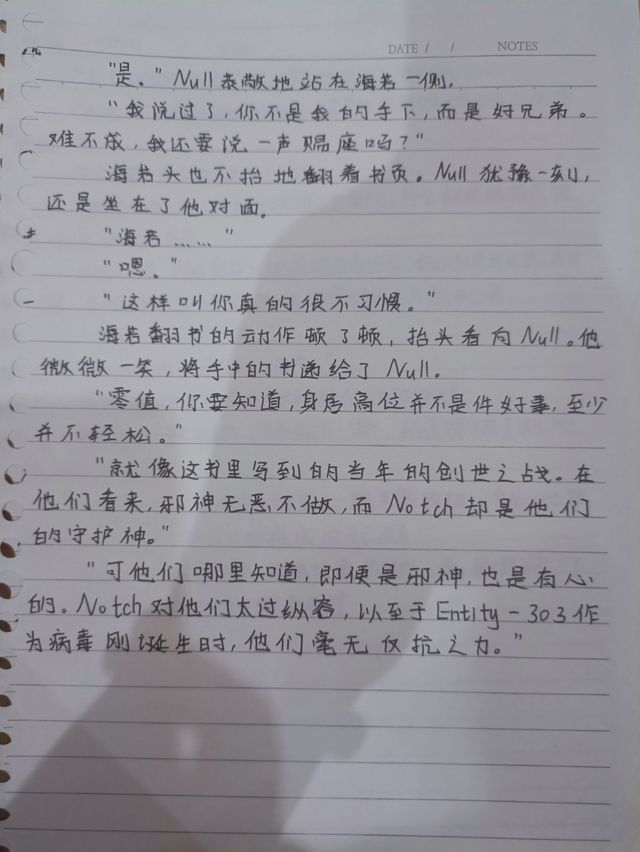 DATE / / NOTES
"是。"Null恭敬地站在海若一侧。
"我说过了,你不是我的手下,而是好兄弟。
难不成,我还要说一声赐座吗?"
海若头也不抬地翻着书页。Null犹豫一刻,
还是坐在了他对面。
"海若……"
"嗯。"
"这样叫你真的很不习惯。"
海若翻书的动作顿了顿,抬头看向Null。他
微微一笑,将手中的书递给了Null。
"零值,你要知道,身居高位并不是件好事,至少
并不轻松。"
"就像这书里写到的当年的创世之战。在
他们看来,邪神无恶不做,而Notch却是他们
的守护神。"
"可他们哪里知道,即便是邪神,也是有心
的。Notch对他们太过纵容,以至于Entity-303作
为病毒刚诞生时,他们毫无仅抗之力。"